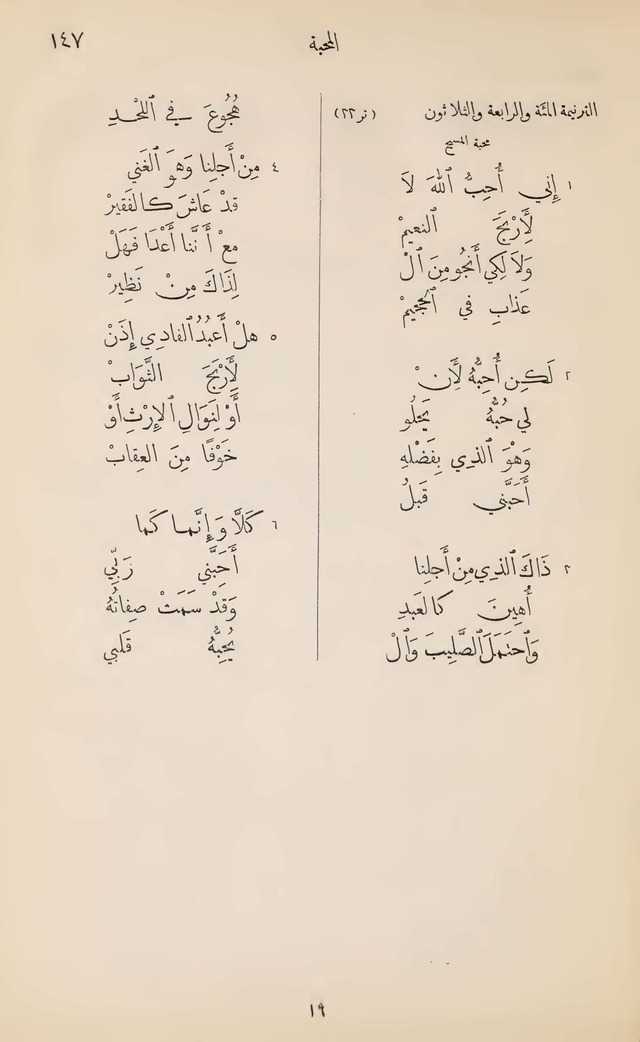 المحبة ١٤٧
الترنيمة المئة والرابعة والثلاثون (نر ٢٢)
محبة المسيح
١ إِني أُحِبُّ ٱللهَ لاَ
لِأَرْبَحَ ٱلنعيمْ
وَلاَ لِكَي أَنجُو مِنَ ٱلْ
عَذابِ في ٱلجحِيمْ
٢ لَكِن أُحِبُّهُ لِأَنْ
لي حُبُّهُ يَحْلُو
وَهْوَ ٱلذي بِفَضْلِهِ
أَحَبَّني قَبلُ
٣ ذَاكَ ٱلذي مِنْ أَجلِنا
أُهِينَ كالعَبدِ
وَٱحتَمَلَ ٱلصَّلِيبَ وَٱلْ
هُجُوعَ في ٱللحْدِ
٤ مِنْ أَجلِنا وَهوَ ٱلغَني
قدْ عَاشَ كالفَقيرْ
معْ أَننا أَعْدَا فَهَلْ
لِذَاكَ مِنْ نَظِيرْ
٥ هلْ أَعبُدُ ٱلفادِي إِذَنْ
لِأَرْبَحَ الثَّوَابْ
أَوْ لِنوَالِ ٱلإِرْثِ أَوْ
خَوْفًا مِنَ العِقابْ
٦ كَلَّا وَإِنَّما كَما
أَحَبَّني رَبِّي
وَقَدْ سَمَتْ صِفاتُهُ
يُحِبُّهُ قَلبي
١٩